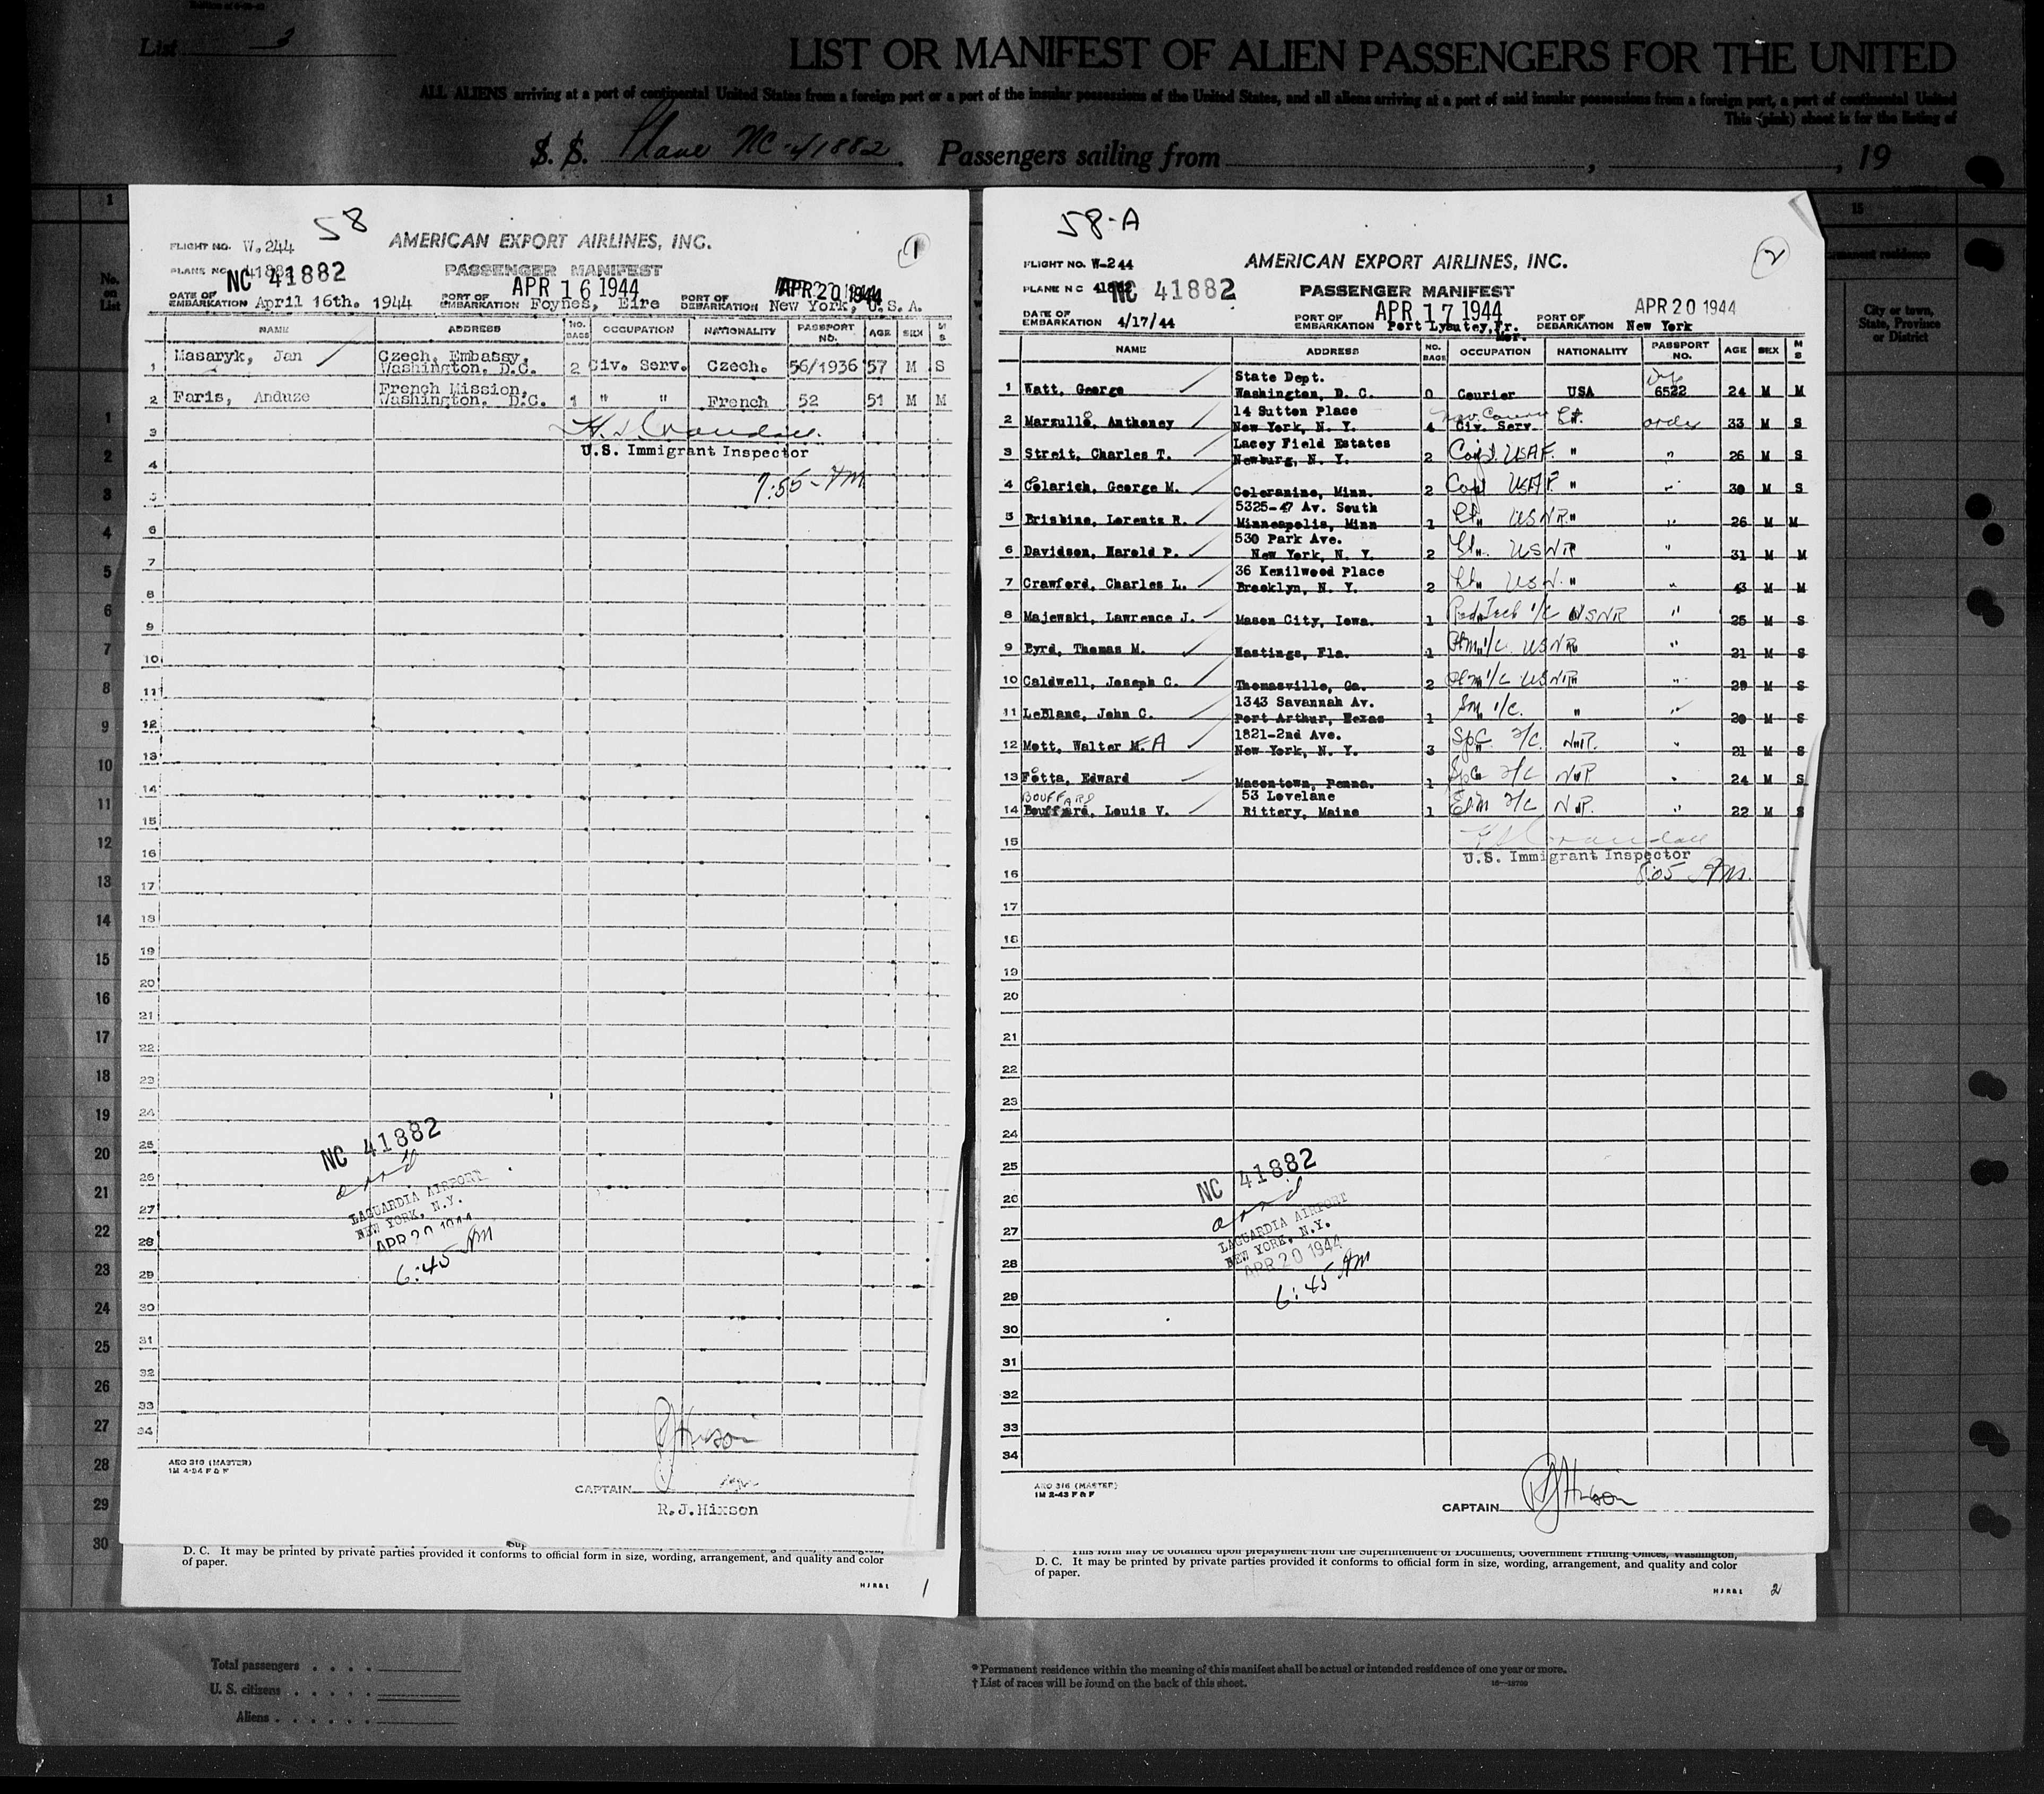 List 3
LIST OR MANIFEST OF ALIEN PASSENGERS FOR THE UNITED
ALL ALIENS arriving at a port of continental United States from a foreign port or a port of the insular possessions of the United States, and all aliens arriving at a port of said insular possessions from a foreign port, a port of continental United
This (pink) sheet is for the listing of
S. S. Plane NC-41882. Passengers sailing from , , 19
58
FLIGHT NO. W.244 AMERICAN EXPORT AIRLINES, INC. 1
PLANE NC NC 41882 PASSENGER MANIFEST
APR 16 1944 APR 20 1944
DATE OF EMBARKATION April 16th. 1944 PORT OF EMBARKATION Foynes, Eire PORT OF DEBARKATION New York, U.S.A.
NAME ADDRESS NO. BAGS OCCUPATION NATIONALITY PASSPORT NO. AGE SEX M S
1 Masaryk, Jan Czech. Embassy, Washington, D.C. 2 Civ. Serv. Czech. 56/1936 57 M S
2 Faris, Anduze French Mission, Washington, D.C. 1 " " French 52 51 M M
3
U.S. Immigrant Inspector
4
7:55 AM
5
6
7
8
9
10
11
12
13
14
15
16
17
18
19
20
21
22
23
24
NC 41882
25
26 arrd
LAGUARDIA AIRPORT
27 NEW YORK, N.Y.
APR 20 1944
28 6:45 AM
29
30
31
32
33
34
AEO 316 (MASTER)
CAPTAIN
R.J.Hixson
D. C. It may be printed by private parties provided it conforms to official form in size, wording, arrangement, and quality and color
of paper.
HJR&L 1
58-A
FLIGHT NO. W-244 AMERICAN EXPORT AIRLINES, INC. 2
PLANE NC NC 41882 PASSENGER MANIFEST
APR 17 1944 APR 20 1944
DATE OF EMBARKATION 4/17/44 PORT OF EMBARKATION Port Lyautey, Fr. Mor. PORT OF DEBARKATION New York
NAME ADDRESS NO. BAGS OCCUPATION NATIONALITY PASSPORT NO. AGE SEX M S
1 Watt, George State Dept. Washington, D. C. 0 Courier USA 6522 24 M M
2 Marzullo, Anthoney 14 Sutton Place New York, N. Y. 4 Civ. Serv. Lt. order 33 M S
3 Streit, Charles T. Lacey Field Estates Newburg, N. Y. 2 Capt. USAF. " " 26 M S
4 Colarich, George M. Coleranine, Minn. 2 Capt USAF. " " 30 M S
5 Brisbine, Lorentz R. 5325-47 Av. South Minneapolis, Minn 1 Lt. USNR. " " 26 M M
6 Davidson, Harold P. 530 Park Ave. New York, N. Y. 2 Lt. USNR " 31 M M
7 Crawford, Charles L. 36 Kenilwood Place Brooklyn, N. Y. 2 Lt. USN. " " 43 M M
8 Majewski, Lawrence J. Mason City, Iowa. 1 Rad.Tech 1/C USNR " 25 M S
9 Byrd, Thomas M. Hastings, Fla. 1 1/C USNR " 21 M S
10 Caldwell, Joseph C. Thomasville, Ga. 2 1/C USNR " 20 M S
11 LeBlanc, John C. 1343 Savannah Av. Port Arthur, Texas 1 Sm 1/C. " " 20 M S
12 Mott, Walter M. A 1821-2nd Ave. New York, N. Y. 3 Sp. 2/C. NR. " 21 M S
13 Fotta, Edward Masontown, Penna. 1 2/C NR " 24 M S
BOUFFARD
14 Bouffard, Louis V. 53 Lovelane Rittery, Maine 1 2/C NR. " 22 M S
15
U.S. Immigrant Inspector
16 8:05 AM.
17
18
19
20
21
22
23
24
25
NC 41882
26 arrd
LAGUARDIA AIRPORT
27 NEW YORK, N.Y.
28 APR 20 1944
29 6:45 AM
30
31
32
33
34
AEO 316 (MASTER)
1M 2-43 F & F
CAPTAIN
This form may be obtained upon prepayment from the Superintendent of Documents, Government Printing Office, Washington,
D. C. It may be printed by private parties provided it conforms to official form in size, wording, arrangement, and quality and color
of paper.
HJR&L 2
No. on List
1
1
2
3
4
5
6
7
8
9
10
11
12
13
14
15
16
17
18
19
20
21
22
23
24
25
26
27
28
29
30
15
permanent residence
City or town, State, Province or District
Total passengers
U. S. citizens
Aliens
* Permanent residence within the meaning of this manifest shall be actual or intended residence of one year or more.
† List of races will be found on the back of this sheet.